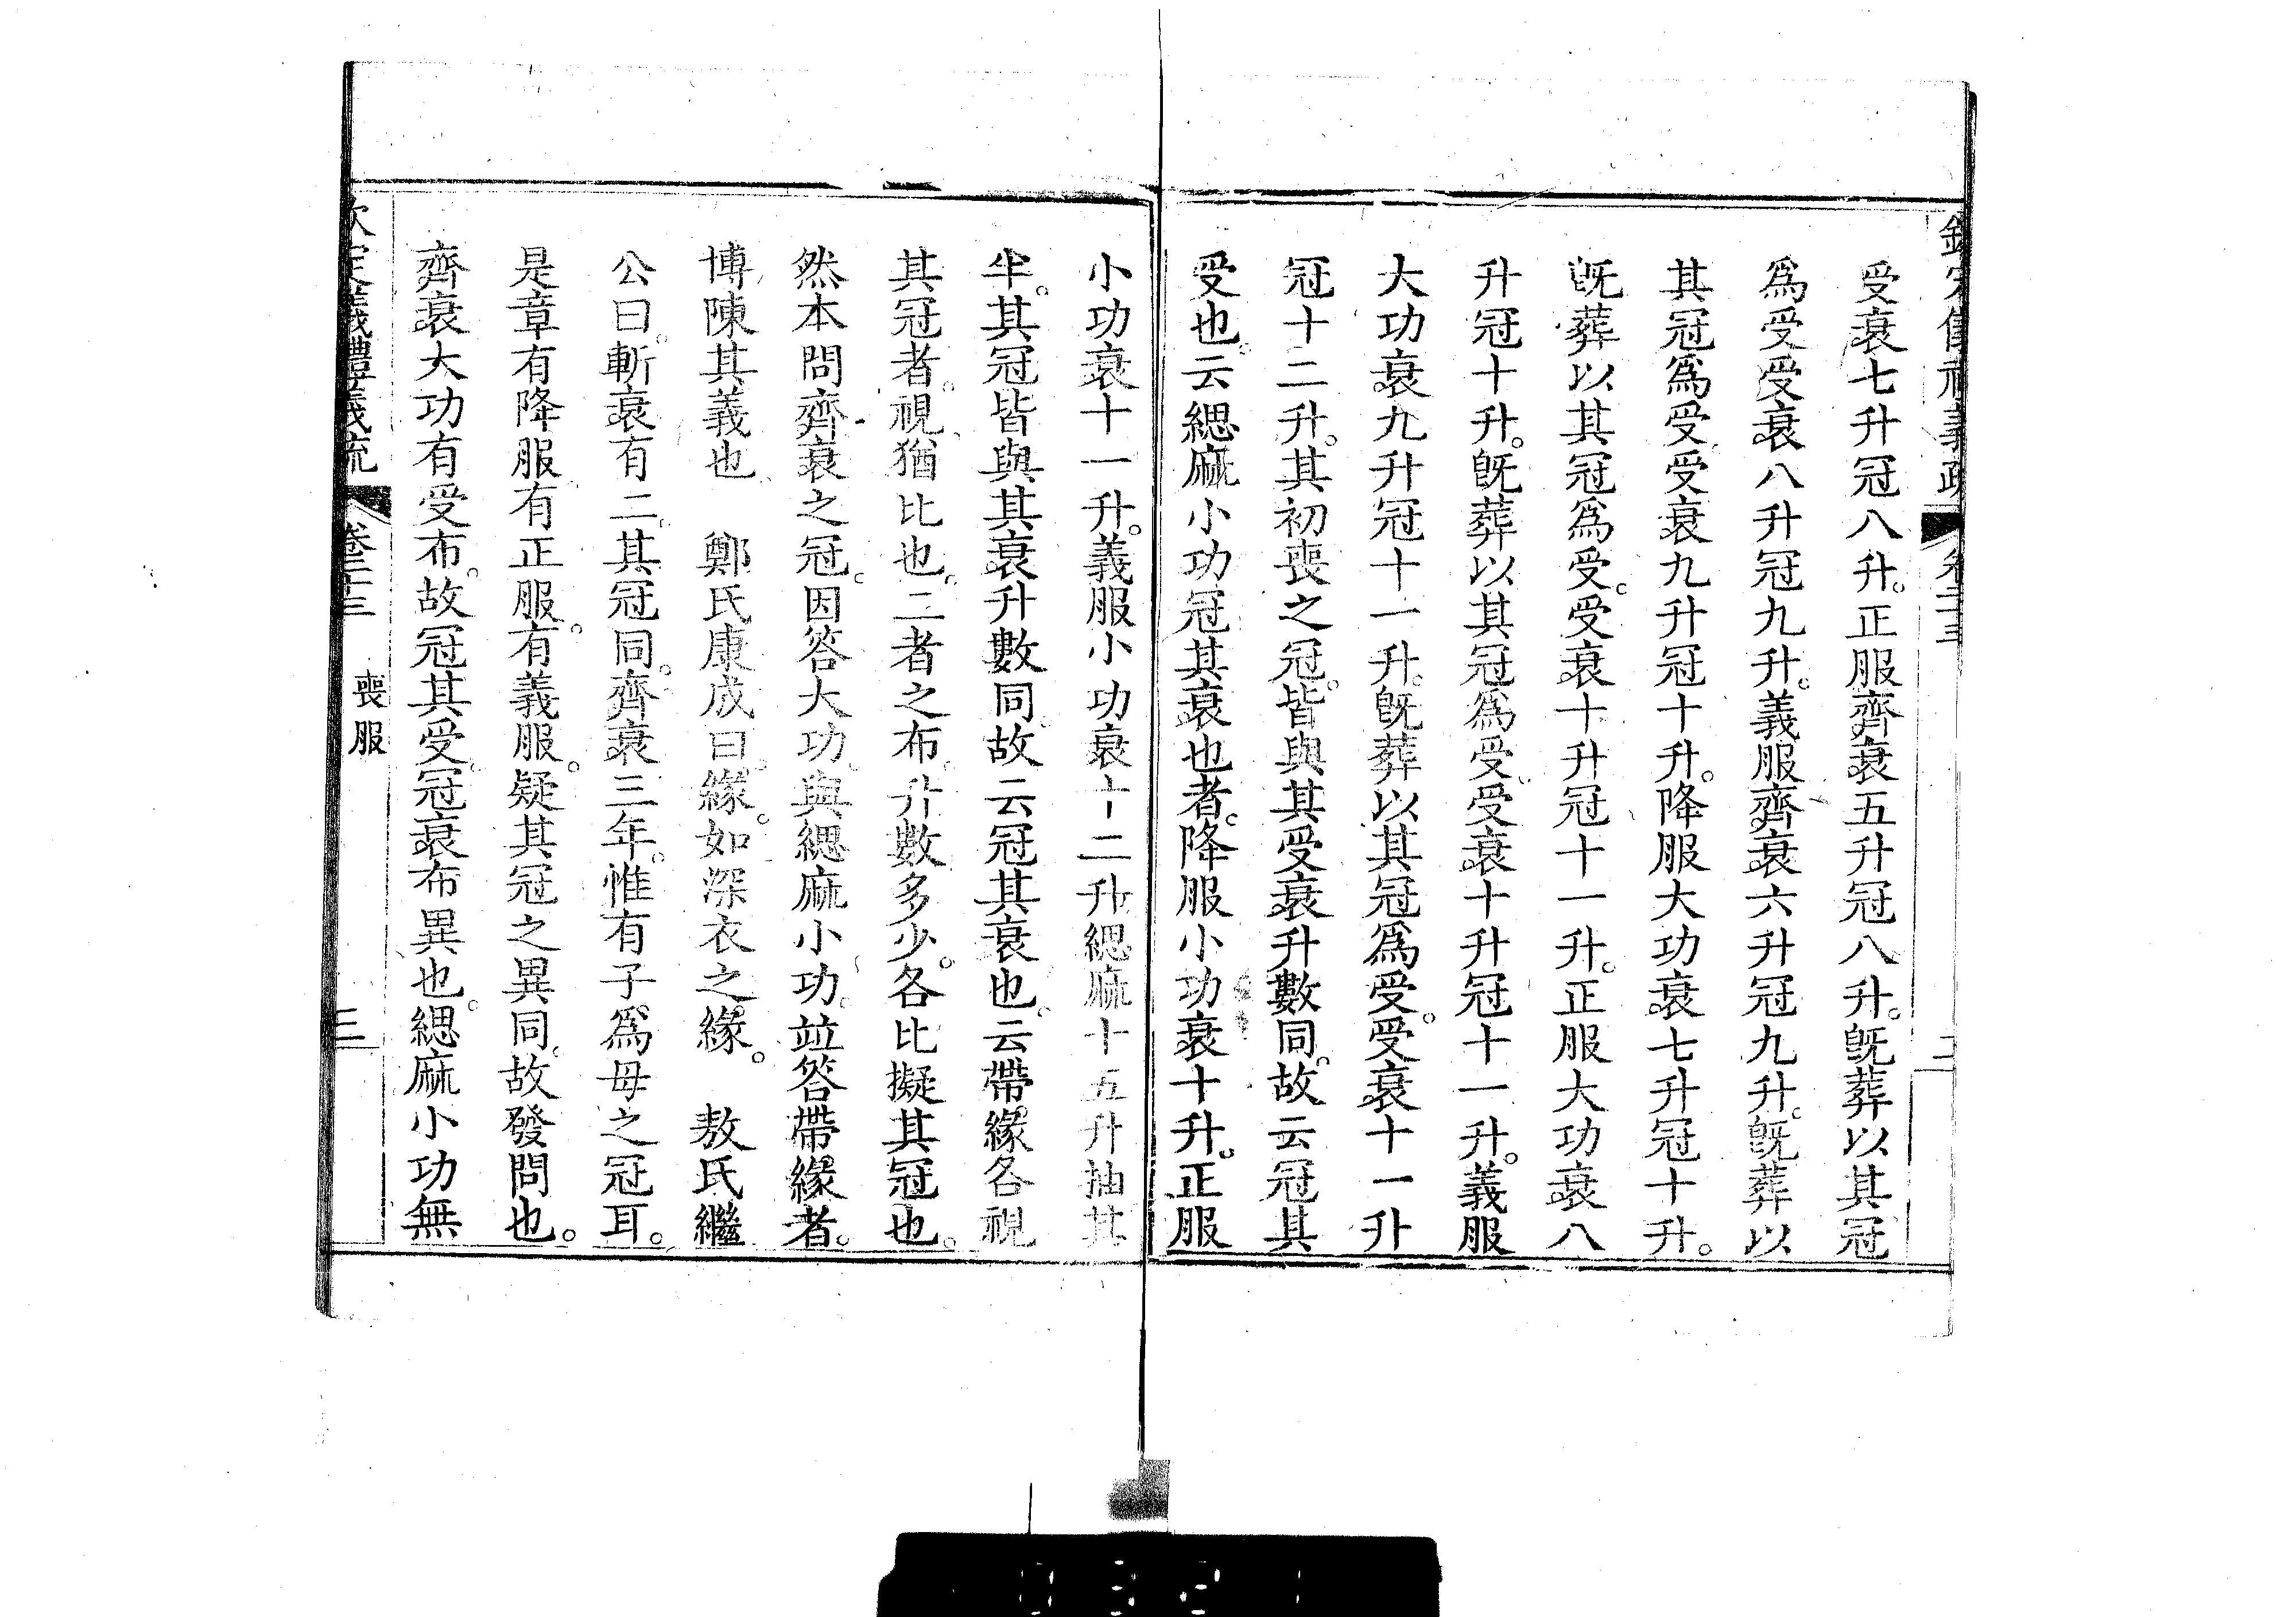 欽定儀禮義疏 卷二十三 二
受衰七升冠八升。正服齊衰五升冠八升。旣葬以其冠
爲受受衰八升冠九升。義服齊衰六升冠九升。旣葬以
其冠爲受受衰九升冠十升。降服大功衰七升冠十升。
旣葬以其冠爲受。受衰十升冠十一升。正服大功衰八
升冠十升。旣葬以其冠爲受受衰十升冠十一升。義服
大功衰九升冠十一升。旣葬以其冠爲受。受衰十一升
冠十二升。其初喪之冠。皆與其受衰升數同。故云冠其
受也。云緦麻小功冠其衰也者。降服小功衰十升。正服
小功衰十一升。義服小功衰十二升緦麻十五升抽其
半。其冠皆與其衰升數同。故云冠其衰也。云帶緣各視
其冠者。視猶比也。二者之布升數多少。各比擬其冠也。
然本問齊衰之冠。因答大功與緦麻小功。竝答帶緣者。
博陳其義也 鄭氏康成曰。緣。如深衣之緣。 敖氏繼
公曰。斬衰有二。其冠同。齊衰三年。惟有子爲母之冠耳。
是章有降服有正服。有義服。疑其冠之異同。故發問也。
齊衰大功有受布。故冠其受。冠衰布異也。緦麻小功無
欽定儀禮義疏 卷二十三 喪服 三